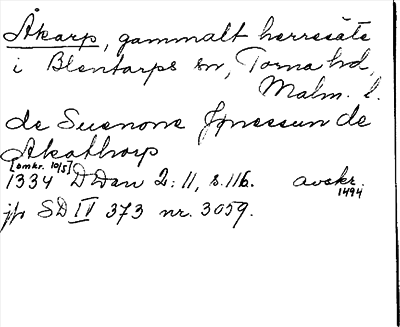 Åkarp, gammalt herresäte
i Blentarps sn, Torna hd,
Malm. l.
de Suenone Jonessun de
Akathorp
[omkr. 10/5]
1334 DDan 2:11, s. 116. avskr.
1494
jfr SD IV 373 nr. 3059.